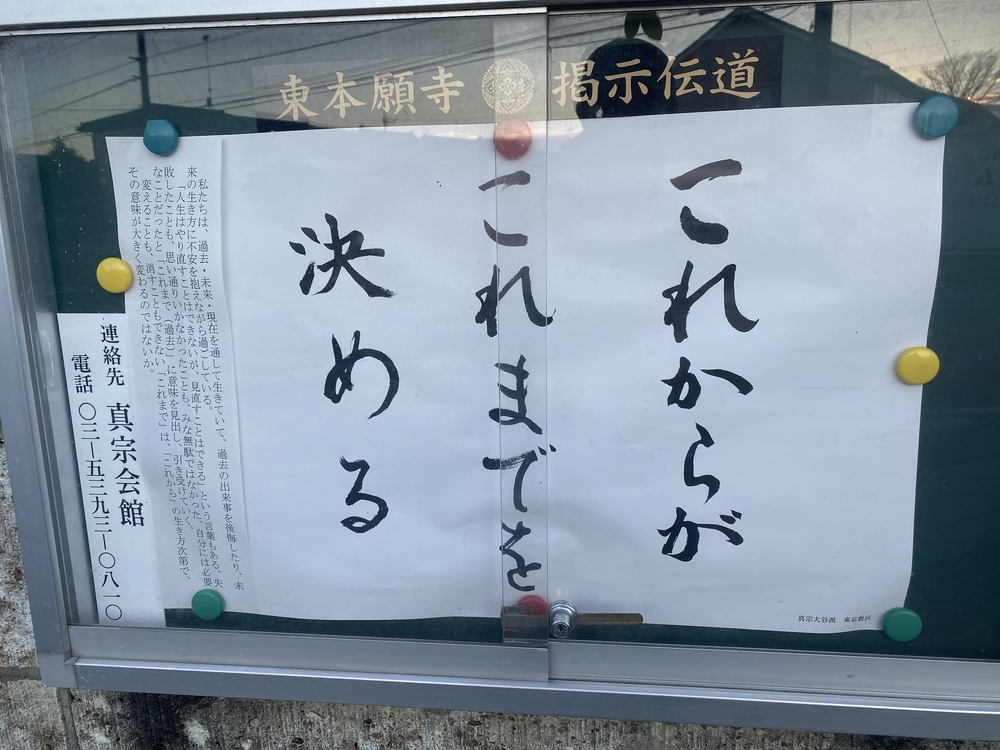 東本願寺 掲示伝道
これからが
これまでを
決める
私たちは、過去・未来・現在を通して生きていて、過去の出来事を後悔したり、未
来の生き方に不安を抱えながら過ごしている。
「人生はやり直すことはできないが、見直すことはできる」という言葉もある。失
敗したことも、思い通りいかなかったことも、みな無駄ではなかった、自分には必要
なことだったと「これまで（過去）」に意味を見出し、引き受けていく。
変えることも、消すこともできない「これまで」は、「これから」の生き方次第で、
その意味が大きく変わるのではないか。
連絡先 真宗会館
電話 〇三―五三九三―〇八一〇
真宗大谷派 東京教区